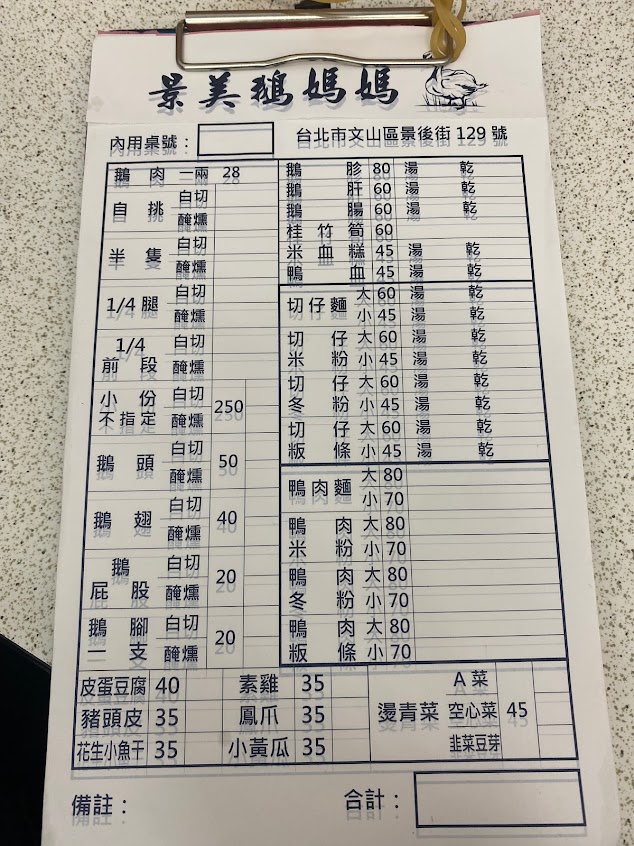 景美鵝媽媽
內用桌號：
台北市文山區景後街 129 號
鵝肉 一兩 28
自挑 白切
醃燻
半隻 白切
醃燻
1/4腿 白切
醃燻
1/4前段 白切
醃燻
小份不指定 白切 250
醃燻
鵝頭 白切 50
醃燻
鵝翅 白切 40
醃燻
鵝屁股 白切 20
醃燻
鵝腳二支 白切 20
醃燻
鵝胗 80 湯 乾
鵝肝 60 湯 乾
鵝腸 60 湯 乾
桂竹筍 60
米血糕 45 湯 乾
鴨血 45 湯 乾
切仔麵 大 60 湯 乾
小 45 湯 乾
切仔米粉 大 60 湯 乾
小 45 湯 乾
切仔冬粉 大 60 湯 乾
小 45 湯 乾
切仔粄條 大 60 湯 乾
小 45 湯 乾
鴨肉麵 大 80
小 70
鴨肉米粉 大 80
小 70
鴨肉冬粉 大 80
小 70
鴨肉粄條 大 80
小 70
皮蛋豆腐 40 素雞 35
豬頭皮 35 鳳爪 35
花生小魚干 35 小黃瓜 35
燙青菜 A菜 45
空心菜
韭菜豆芽
備註：
合計：